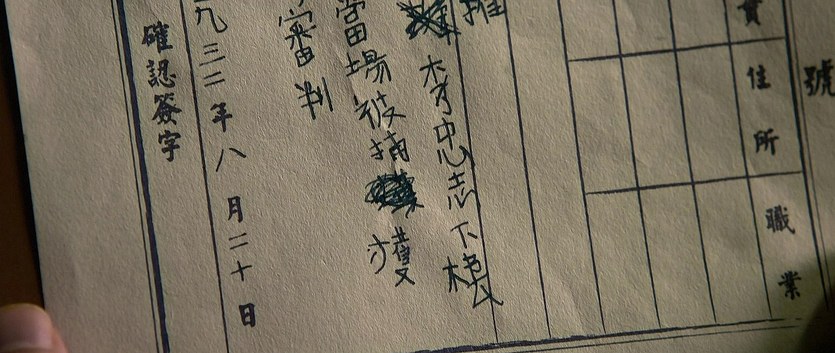 號
貫 住所 職業
李忠志下
當場被捕獲
審判
九三二年八月二十日
確認簽字